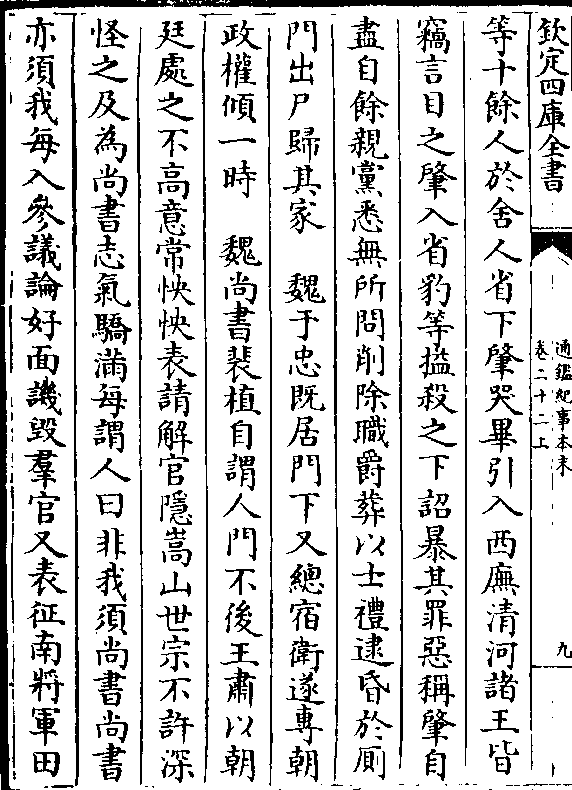 欽定四庫全書
通鑑紀事本末
卷二十二上
九
等十餘人於舍人省下肇哭畢引入西廡清河諸王皆
竊言目之肇入省豹等搤殺之下詔暴其罪惡稱肇自
盡自餘親黨悉無所問削除職爵葬以士禮逮昏於厠
門出尸歸其家　魏于忠既居門下又總宿衛遂專朝
政權傾一時　魏尚書裴植自謂人門不後王肅以朝
廷處之不高意常怏怏表請解官隱嵩山世宗不許深
怪之及為尚書志氣驕滿每謂人曰非我須尚書尚書
亦須我每入參議論好面譏毀羣官又表征南將軍田